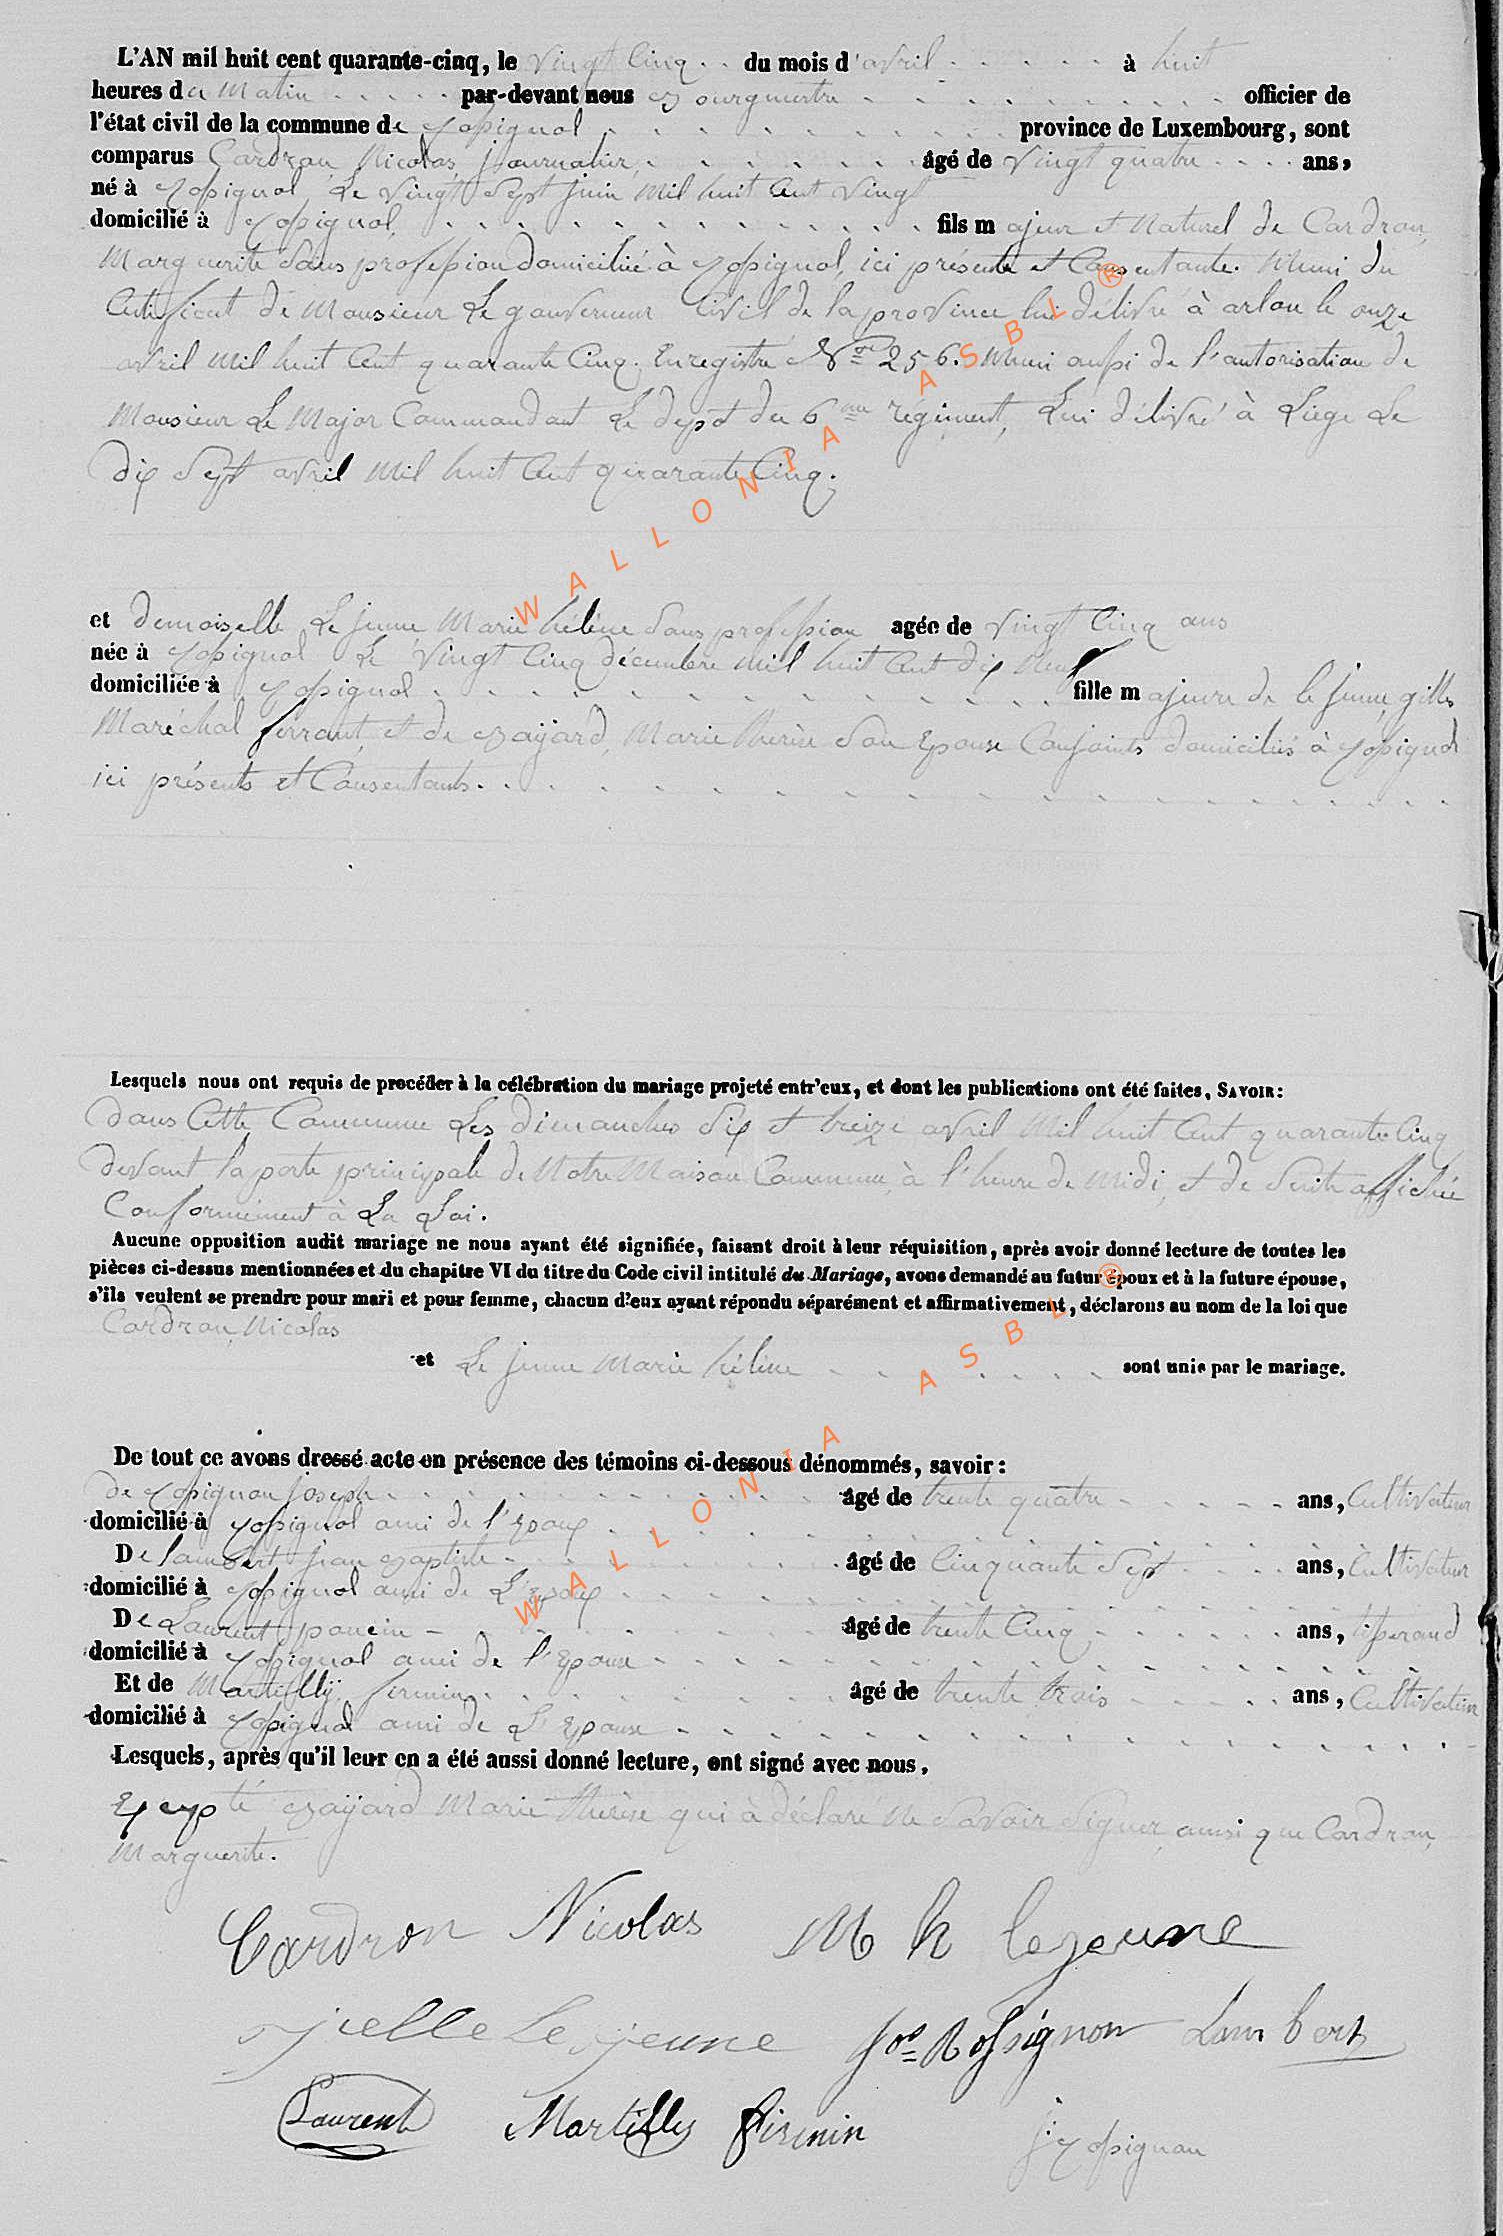 L'AN mil huit cent quarante-cinq, le vingt Cinq du mois d'avril à huit
heures du Matin par-devant nous Bourgmestre officier de
l'état civil de la commune de Rossignol province de Luxembourg, sont
comparus Cardron, Nicolas, Journalier, âgé de vingt quatre ans,
né à Rossignol, Le vingt Sept Juin Mil huit Cent vingt
domicilié à Rossignol, fils majeur et Naturel de Cardron,
Marguerite Sans profession domiciliée à Rossignol, ici présente et Consentante. Muni du
Certificat de Monsieur Le gouverneur Civil de la province lui délivré à arlon le onze
avril Mil huit Cent quarante Cinq. Enregistré N° 256. Muni aussi de l'autorisation de
Monsieur Le Major Commandant Le depôt du 6me régiment, Lui délivré à Liège Le
dix Sept avril Mil huit Cent quarante Cinq.
et demoiselle Le jeune Marie hélène Sans profession agée de vingt Cinq ans
née à Rossignol Le vingt Cinq décembre Mil huit Cent dix Neuf
domiciliée à Rossignol fille majeure de le Jeune, gilles
Maréchal ferrant, et de Bayard, Marie thérèse Son Epouse Conjoints domiciliés à Rossignol
ici présents et Consentants.
Lesquels nous ont requis de procéder à la célébration du mariage projeté entr'eux, et dont les publications ont été faites, SAVOIR:
dans Cette Commune Les dimanches Six et treize avril Mil huit Cent quarante Cinq
devant la porte principale de Notre Maison Commune, à l'heure de Midi, et de Suite affichée
Conformément à La Loi.
Aucune opposition audit mariage ne nous ayant été signifiée, faisant droit à leur réquisition, après avoir donné lecture de toutes les
pièces ci-dessus mentionnées et du chapitre VI du titre du Code civil intitulé du Mariage, avons demandé au futur époux et à la future épouse,
s'ils veulent se prendre pour mari et pour femme, chacun d'eux ayant répondu séparément et affirmativement, déclarons au nom de la loi que
Cardron, Nicolas
et Le Jeune Marie hélène sont unis par le mariage.
De tout ce avons dressé acte en présence des témoins ci-dessous dénommés, savoir:
de Rossignon Joseph âgé de trente quatre ans, Cultivateur
domicilié à Rossignol ami de l'Epoux
De lambert Jean Baptiste âgé de Cinquante Sept ans, Cultivateur
domicilié à Rossignol ami de L'Epoux
De Laurent, poncin âgé de trente Cinq ans, tisserand
domicilié à Rossignol ami de l'Epouse
Et de Martilly, firmin âgé de trente trois ans, Cultivateur
domicilié à Rossignol ami de L'Epouse
Lesquels, après qu'il leur en a été aussi donné lecture, ont signé avec nous.
Excepté Bayard Marie thérèse qui à déclaré Ne Savoir Signer, ainsi que Cardron,
Marguerite.
Cardron Nicolas M h lejeune
Jielle Le jeune Jos Rossignon Lambert
Laurent Martilly Firmin J. Rossignon
WALLONIA ASBL ®
WALLONIA ASBL ®